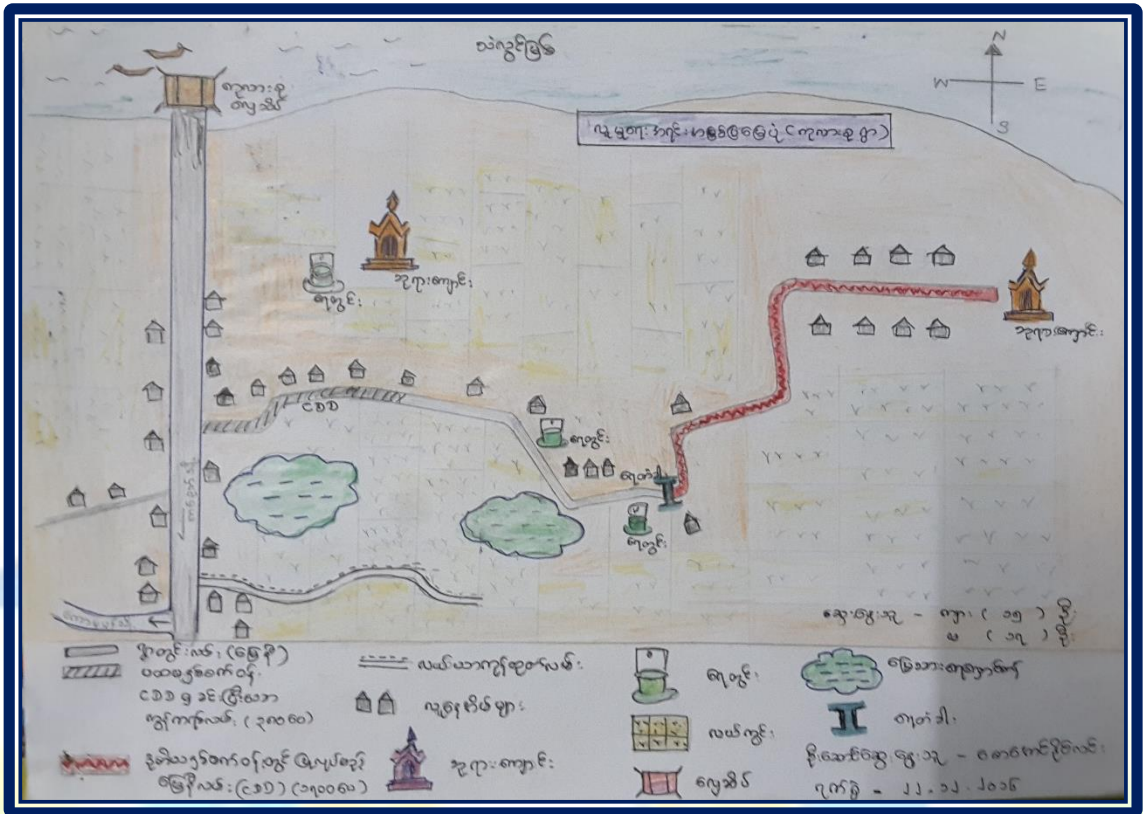 သံလွင်မြစ်
N
W E
S
ကုလားစု
လှေဆိပ်
လူမှုရေး အရင်းအမြစ်ပြမြေပုံ (ကုလားစု ရွာ)
ဘုရားကျောင်း
ရေတွင်း
ဘုရားကျောင်း
CDD
ရေတွင်း
ရေတံခါး
ရေတွင်း
ဆွေးနွေးသူ - ကျား ( ၁၅ ) ဦး
မ ( ၁၇ ) ဦး
ရွာတွင်းလမ်း (မြေနီ)
ပထမနှစ်စက်ဝန်း
CDD မှ ခင်းပြီးသော
ကွန်ကရစ်လမ်း (၃၈၀ပေ)
ဒုတိယနှစ်စက်ဝန်းတွင် ပြုလုပ်မည့်
မြေနီလမ်း (CDD) (၁၈၀၀ပေ)
လယ်ယာကုန်ထုတ်လမ်း
လူနေအိမ်များ
ဘုရားကျောင်း
ရေတွင်း
လယ်ကွင်း
လှေဆိပ်
မြေသားရေလှောင်ကန်
ရေတံခါး
ဦးဆောင်ဆွေးနွေးသူ -
ရက်စွဲ - ၂၂.၁၂.၂၀၁၆